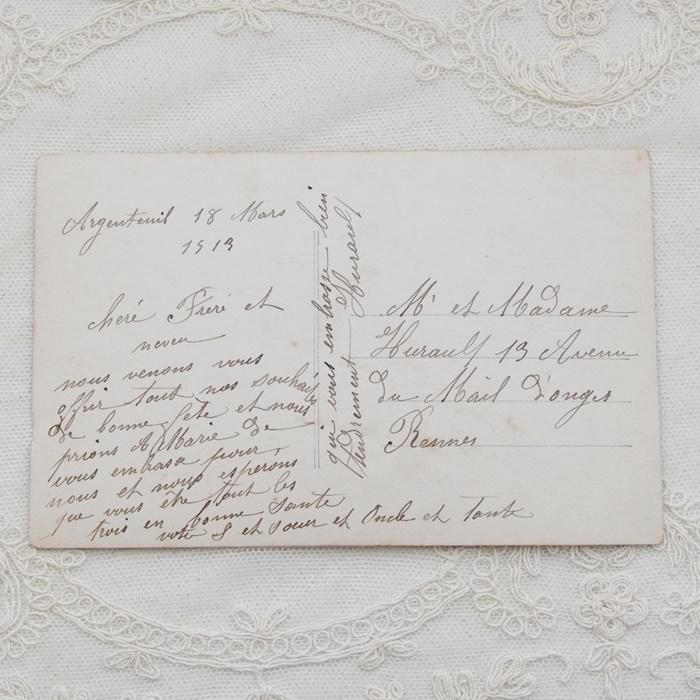 Argenteuil 18 Mars
1913
cheré Freré et
neveu
nous venons vous
offrir tout nos souhais
de bonne fete et nous
prions A Marie de
vous embrasse pour
nous et nous esperons
que vous ete tout les
trois en bonne sante
vote S et sœur et Oncle et Tante
qui vous embrasse bien
tendrement Hurault
Mr et Madame
Hurault 13 Avenu
du Mail d'onges
Rennes